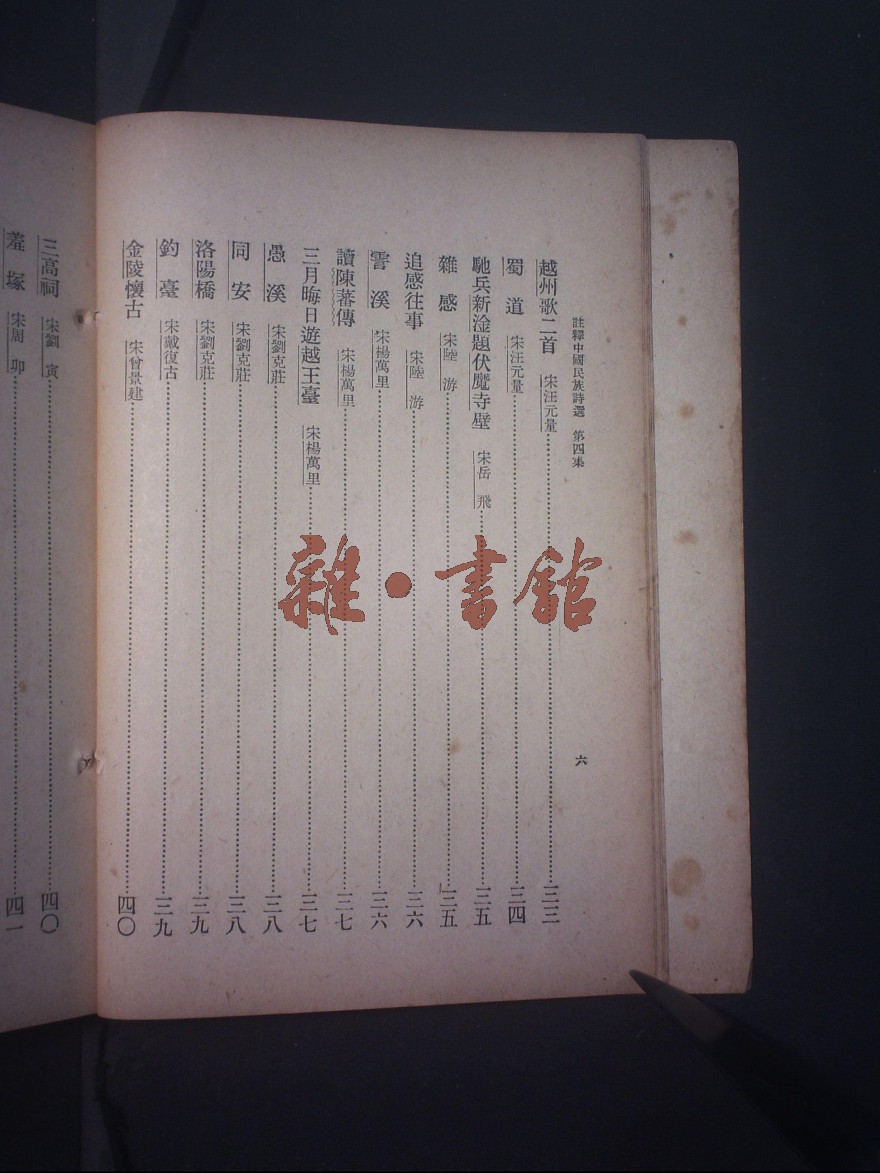 註釋中國民族詩選 第四集 六
越州歌二首 宋汪元量 三三
蜀道 宋汪元量 三四
馳兵新淦題伏魔寺壁 宋岳飛 三五
雜感 宋陸游 三五
追感往事 宋陸游 三六
霅溪 宋楊萬里 三六
讀陳蕃傳 宋楊萬里 三七
三月晦日遊越王臺 宋楊萬里 三七
愚溪 宋劉克莊 三八
同安 宋劉克莊 三八
洛陽橋 宋劉克莊 三九
釣臺 宋戴復古 三九
金陵懷古 宋曾景建 四〇
三高祠 宋劉寅 四〇
羞塚 宋周卯 四一
雜·書館